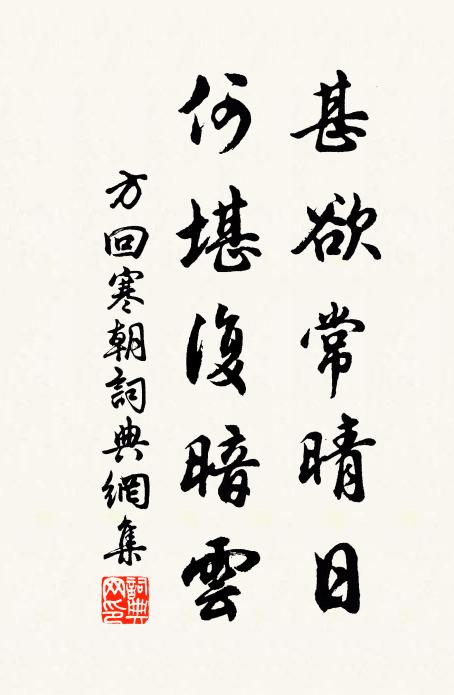 甚欲常晴日
何堪復暗雲
方回寒朝詞典網集
詞典
网印